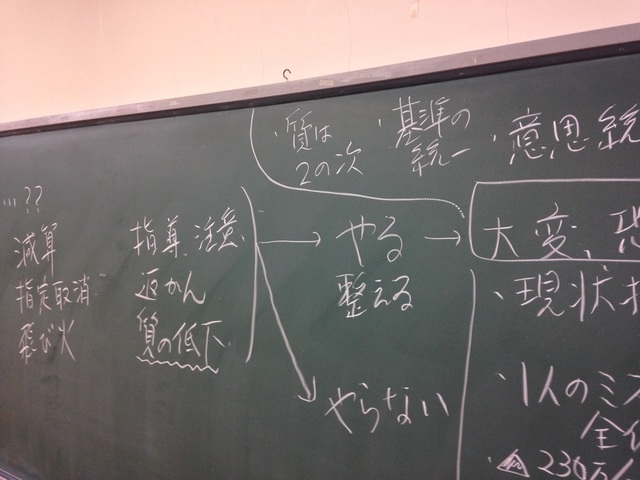 …??
減算
指定取消
飛び火
指導、注意、
返かん
質の低下
・質は
2の次
・基準の
統一
・意思統
やる
整える
やらない
大変、恐
・現状
・1人のミス
全
236万